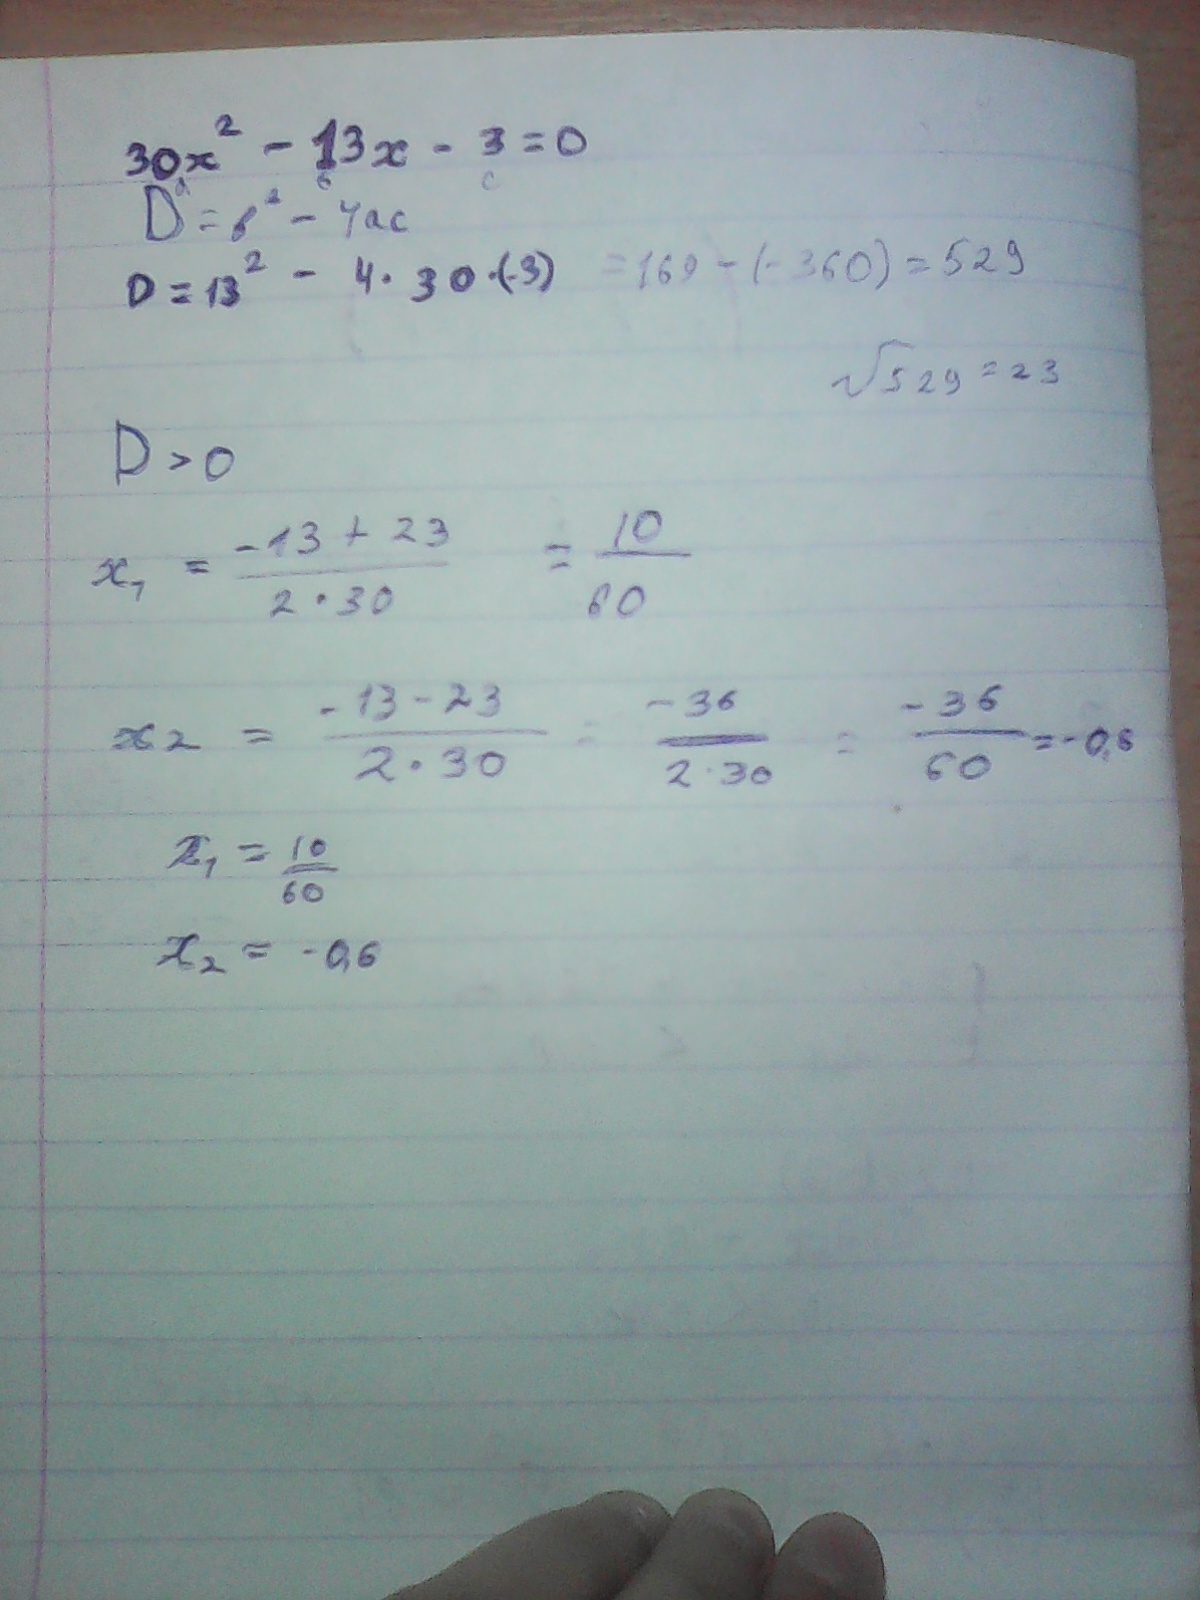 30x² - 13x - 3 = 0
a в c
D = в² - 4ac
D = 13² - 4·30·(-3) = 169 - (-360) = 529
√529 = 23
D > 0
x₁ = (-13 + 23)/(2·30) = 10/60
x2 = (-13 - 23)/(2·30) = -36/(2·30) = -36/60 = -0,6
x₁ = 10/60
x₂ = -0,6